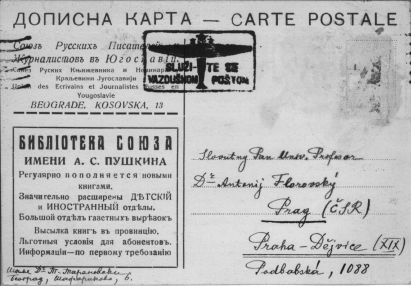 ДОПИСНА КАРТА — CARTE POSTALE
Союзъ Русскихъ Писателей и
Журналистовъ въ Югославіи.
Савез Руских Књижевника и Новинара
Краљевини Југославији
Union des Ecrivains et Journalistes Russes en
Yougoslavie
BEOGRADE, KOSOVSKA, 13
SLUŽITE SE
VAZDUŠNOM POŠTOM
БИБЛІОТЕКА СОЮЗА
ИМЕНИ А. С. ПУШКИНА
Регулярно пополняется новыми
книгами.
Значительно расширены ДѢТСКІЙ
и ИНОСТРАННЫЙ отдѣлы.
Большой отдѣлъ газетныхъ вырѣзокъ
Высылка книгъ въ провинцію.
Льготныя условія для абонентовъ.
Информаціи—по первому требованію
Slovutný Pan Univ. Profesor
Dr Antonij Florovský
Prag (ČSR)
Praha-Dějvice (XIX)
Podbabská, 1088
Dr Т. Тарановски
Београд,